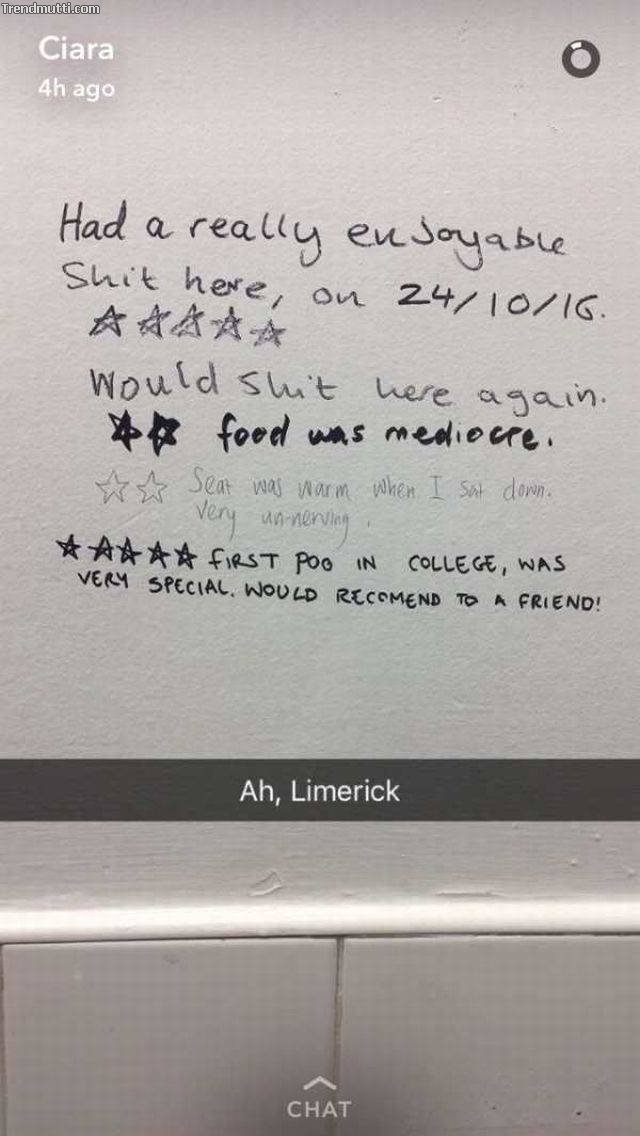 Trendmutti.com
Ciara
4h ago
Had a really enjoyable
Shit here, on 24/10/16.
☆☆☆☆☆
Would shit here again.
★★ food was mediocre.
☆☆ Seat was warm when I sat down.
Very un-nerving.
★★★★★ FIRST POO IN COLLEGE, WAS
VERY SPECIAL. WOULD RECOMEND TO A FRIEND!
Ah, Limerick
CHAT